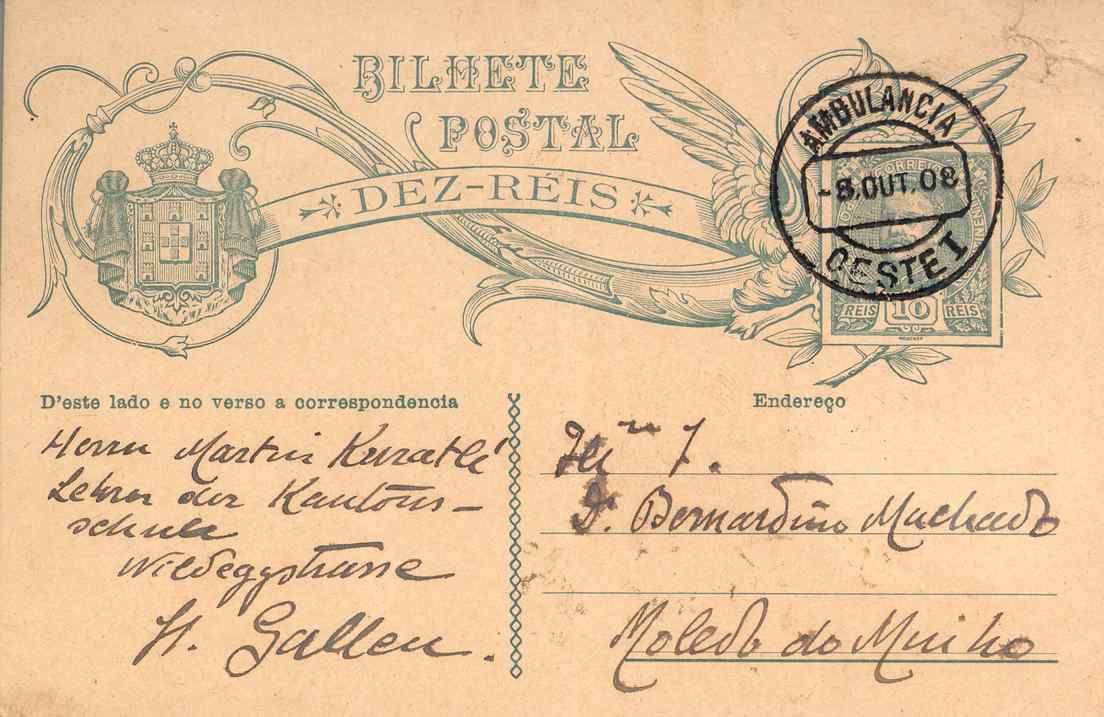 BILHETE
POSTAL
DEZ-RÉIS
AMBULANCIA
-8.OUT.08
OESTE I
CORREIO
REIS 10 REIS
D'este lado e no verso a correspondencia
Endereço
Herrn Martin Kuratlé
Lehrer der Kantons-
schule
Wildeggstrasse
St. Gallen.
D. Bernardino Machado
Moledo do Minho